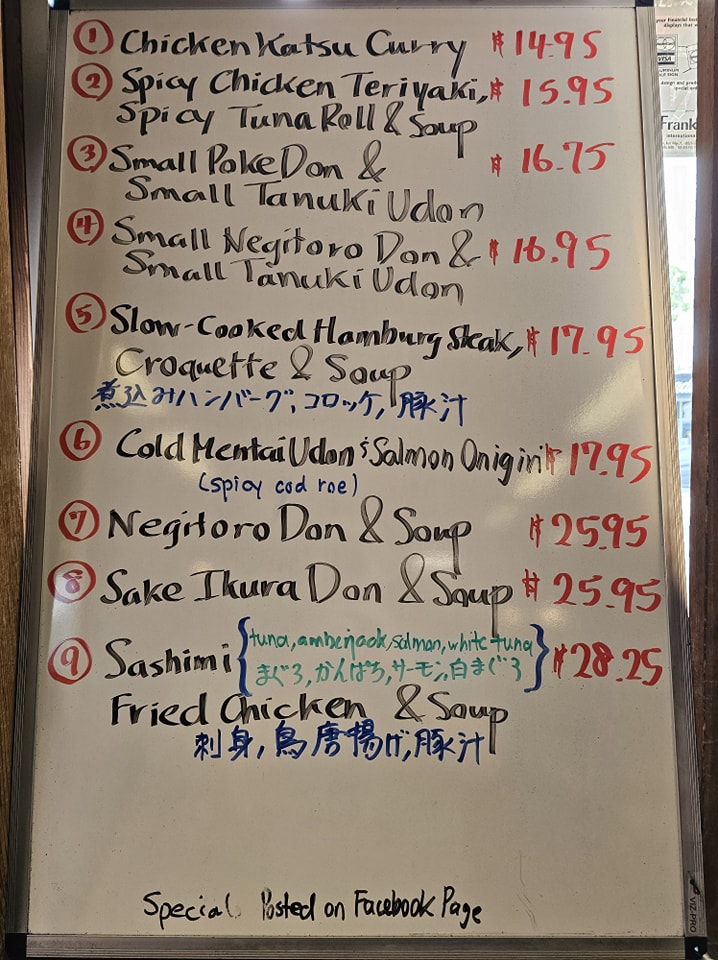 ① Chicken Katsu Curry $14.95
② Spicy Chicken Teriyaki, $15.95
Spicy Tuna Roll & Soup
③ Small Poke Don & $16.75
Small Tanuki Udon
④ Small Negitoro Don & $16.95
Small Tanuki Udon
⑤ Slow-Cooked Hamburg Steak, $17.95
Croquette & Soup
煮込みハンバーグ, コロッケ, 豚汁
⑥ Cold Mentai Udon & Salmon Onigiri $17.95
(spicy cod roe)
⑦ Negitoro Don & Soup $25.95
⑧ Sake Ikura Don & Soup $25.95
⑨ Sashimi {tuna, amberjack, salmon, white tuna} $28.25
まぐろ, かんぱち, サーモン, 白まぐろ
Fried Chicken & Soup
刺身, 鳥唐揚げ, 豚汁
Special Posted on Facebook Page
VIZ-PRO
VISA
Frank